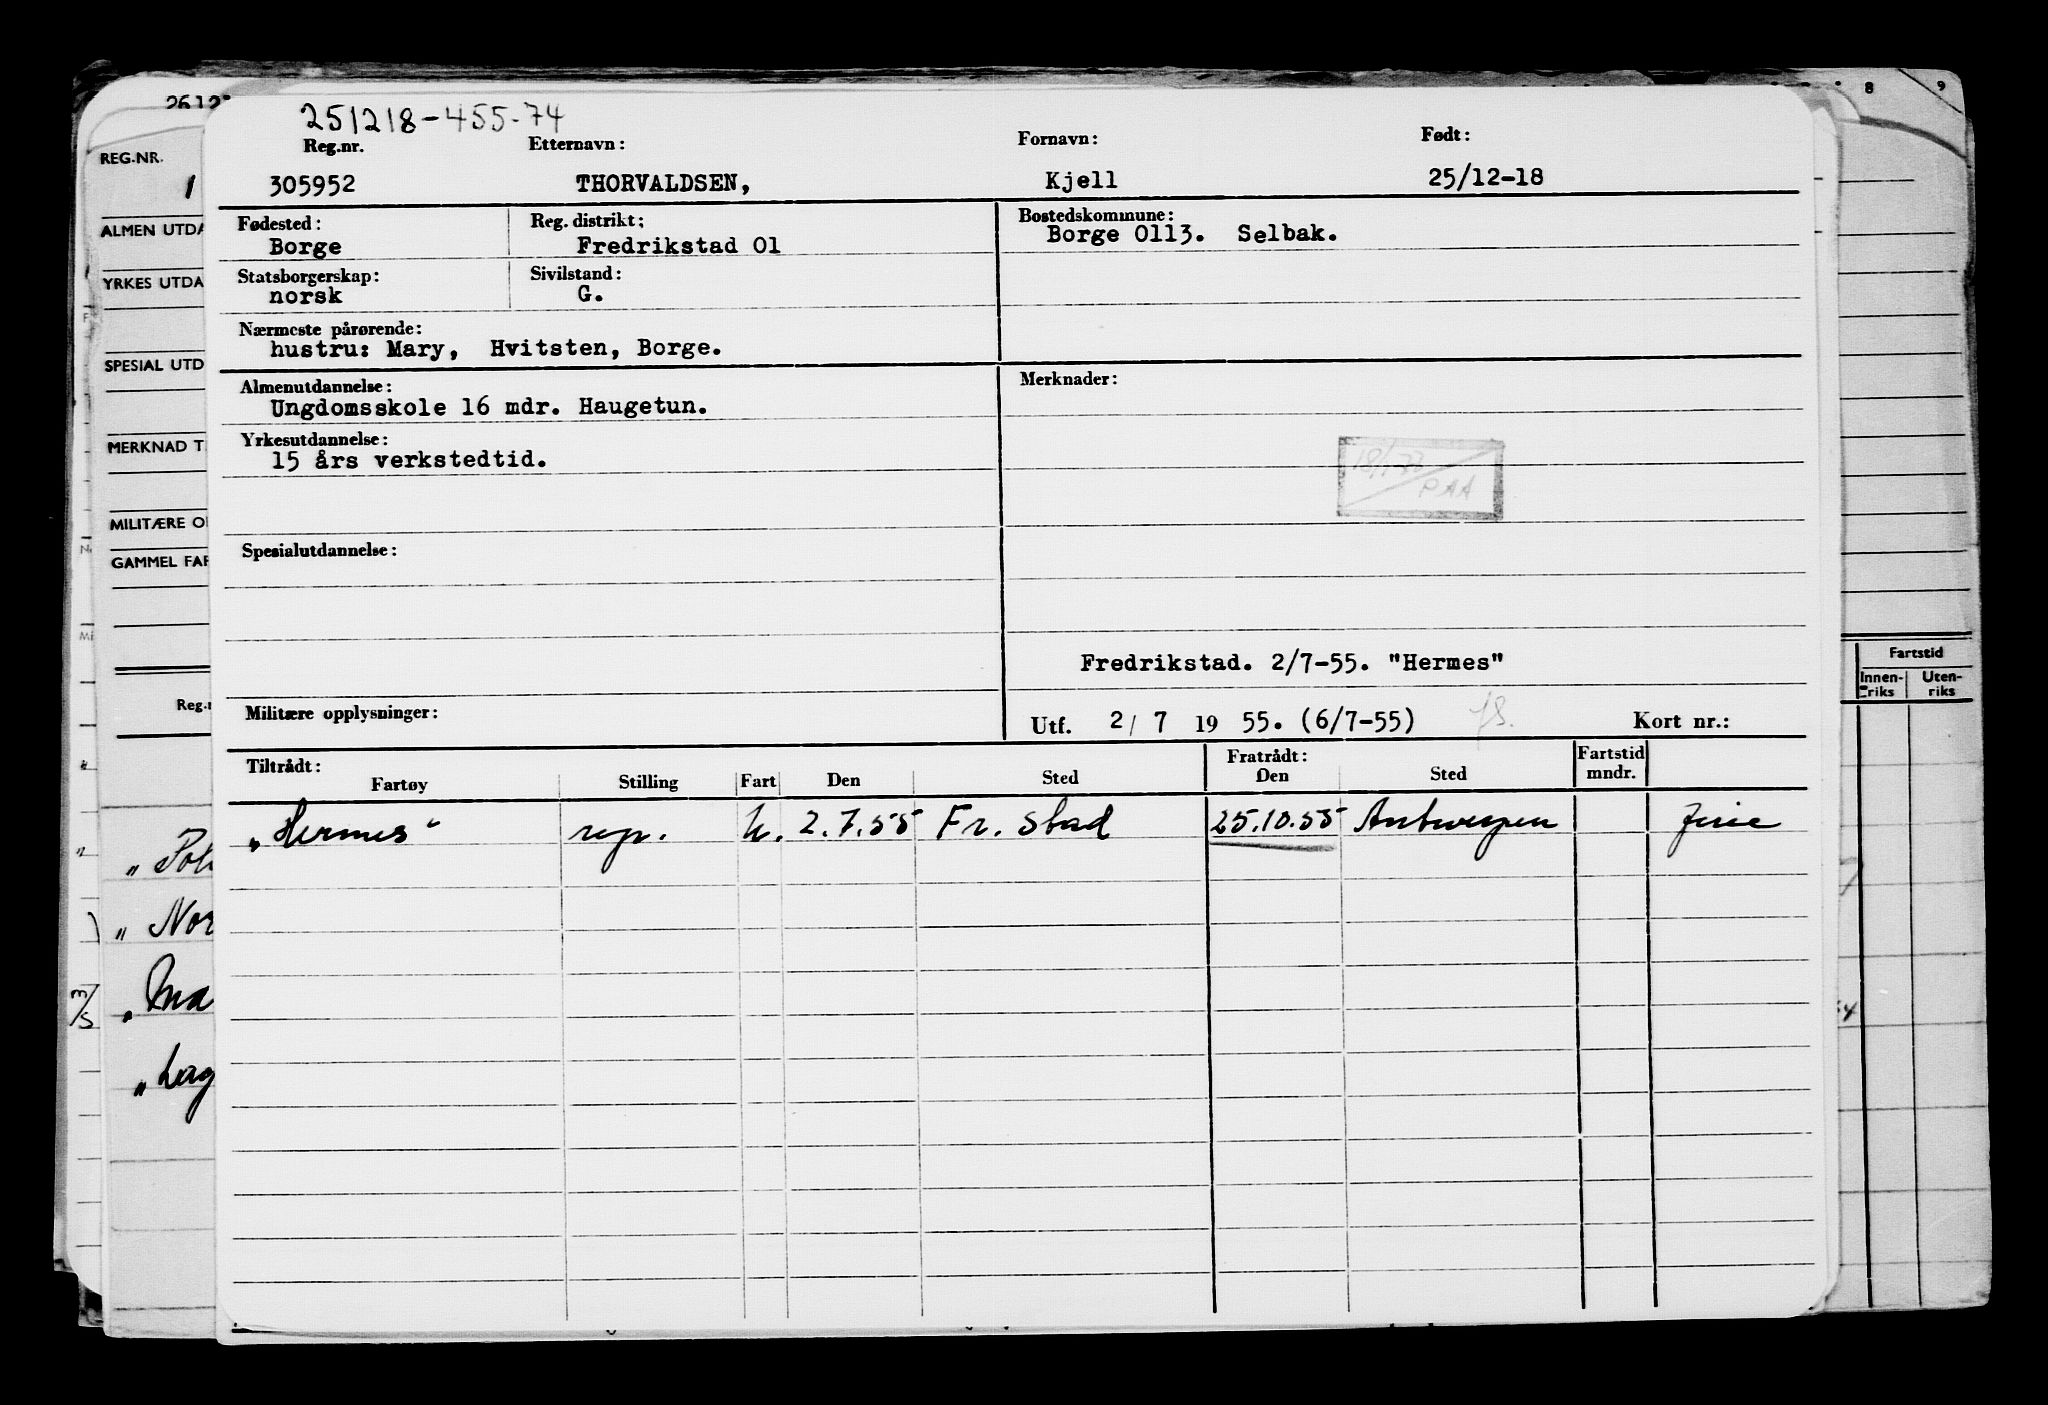 251218-455-74
Reg.nr. Etternavn: Fornavn: Født:
305952 THORVALDSEN, Kjell 25/12-18
Fødested: Reg. distrikt: Bostedskommune:
Borge Fredrikstad 01 Borge 0113. Selbak.
Statsborgerskap: Sivilstand:
norsk G.
Nærmeste pårørende:
hustru: Mary, Hvitsten, Borge.
Almenutdannelse: Merknader:
Ungdomsskole 16 mdr. Haugetun.
Yrkesutdannelse:
15 års verkstedtid.
PAA
Spesialutdannelse:
Fredrikstad. 2/7-55. "Hermes"
Militære opplysninger: Utf. 2/ 7 19 55. (6/7-55) Kort nr.:
Tiltrådt: Fratrådt: Fartstid
Fartøy Stilling Fart Den Sted Den Sted mndr.
„Hermes" rep. U. 2.7.55 Fr. Stad 25.10.55 Antwerpen
REG.NR.
1
ALMEN UTDA
YRKES UTDA
SPESIAL UTD
MERKNAD T
MILITÆRE O
GAMMEL FAR
Reg.n
„ Nor
8 9
Fartstid
Innen-riks Uten-riks